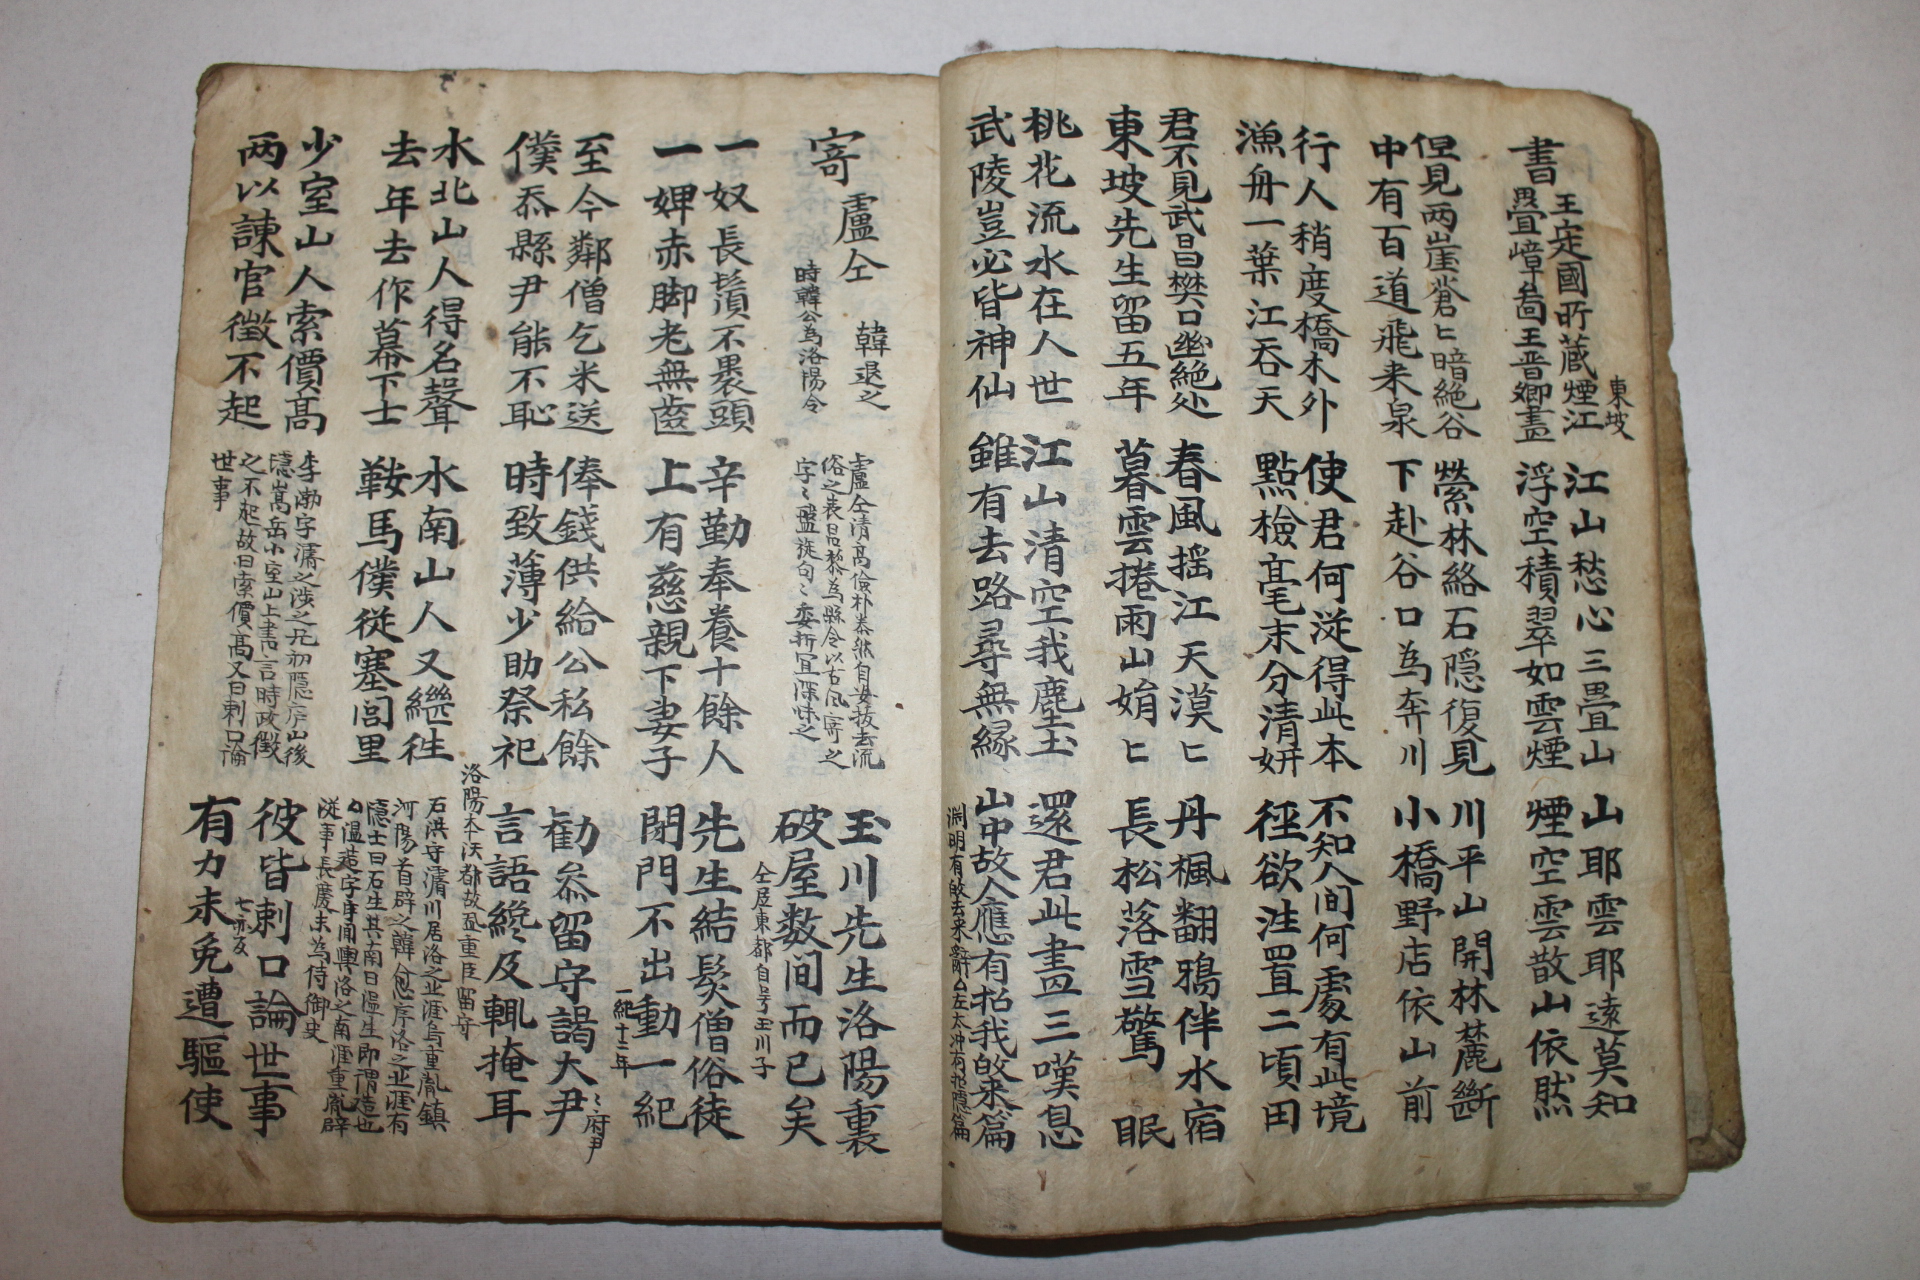 書王定國所蔵煙江
疊嶂啚王晋卿畫
東坡
江山愁心三疊山
浮空積翠如雲煙
山耶雲耶遠莫知
煙空雲散山依然
但見两崖蒼〻暗絶谷
中有百道飛来泉
縈林絡石隠復見
下赴谷口為奔川
川平山開林麓斷
小橋野店依山前
行人稍度橋木外
漁舟一葉江吞天
使君何従得此本
點檢毫末分清妍
不知人间何處有此境
徑欲往置二頃田
君不見武昌樊口幽絶处
東坡先生留五年
春風揺江天漠〻
暮雲捲雨山娟〻
丹楓翻鴉伴水宿
長松落雪驚 眠
桃花流水在人世
武陵豈必皆神仙
江山清空我塵土
雖有去路尋無縁
還君此畫三嘆息
山中故人應有招我故来篇
寄盧仝 韓退之
時韓公為洛陽令
盧仝清高儉朴泰然自安拔去流
俗之表昌黎為縣令以古風寄之
字〻盤旋句〻委折宜深味之
玉川先生洛陽裏
破屋数间而已矣
仝居東都自号玉川子
一奴長鬚不裹頭
一婢赤脚老無齒
辛勤奉養十餘人
上有慈親下妻子
先生結髮僧俗徒
閉門不出動一紀
一紀十二年
至今鄰僧乞米送
僕忝縣尹能不恥
俸錢供給公私餘
時致薄少助祭祀
勸叅留守謁大尹
〻府尹
言語纔及輒掩耳
洛陽本沃都故 重臣留守
水北山人得名聲
去年去作幕下士
水南山人又継往
鞍馬僕従塞閭里
石洪字濬川居洛之北涯烏重胤鎮
河陽首辟之韓愈序洛之北涯有
隠士曰石生其南曰温生即謂造也
温造字 興洛之南涯重胤辟
従事長慶末為侍御史
少室山人索價高
两以諫官徵不起
李渤字濬之 初隠 山後
隠嵩岳小室山上書言時政徵
之不起故曰索價高又曰刺口論
世事
彼皆刺口論世事
有力未免遭驅使